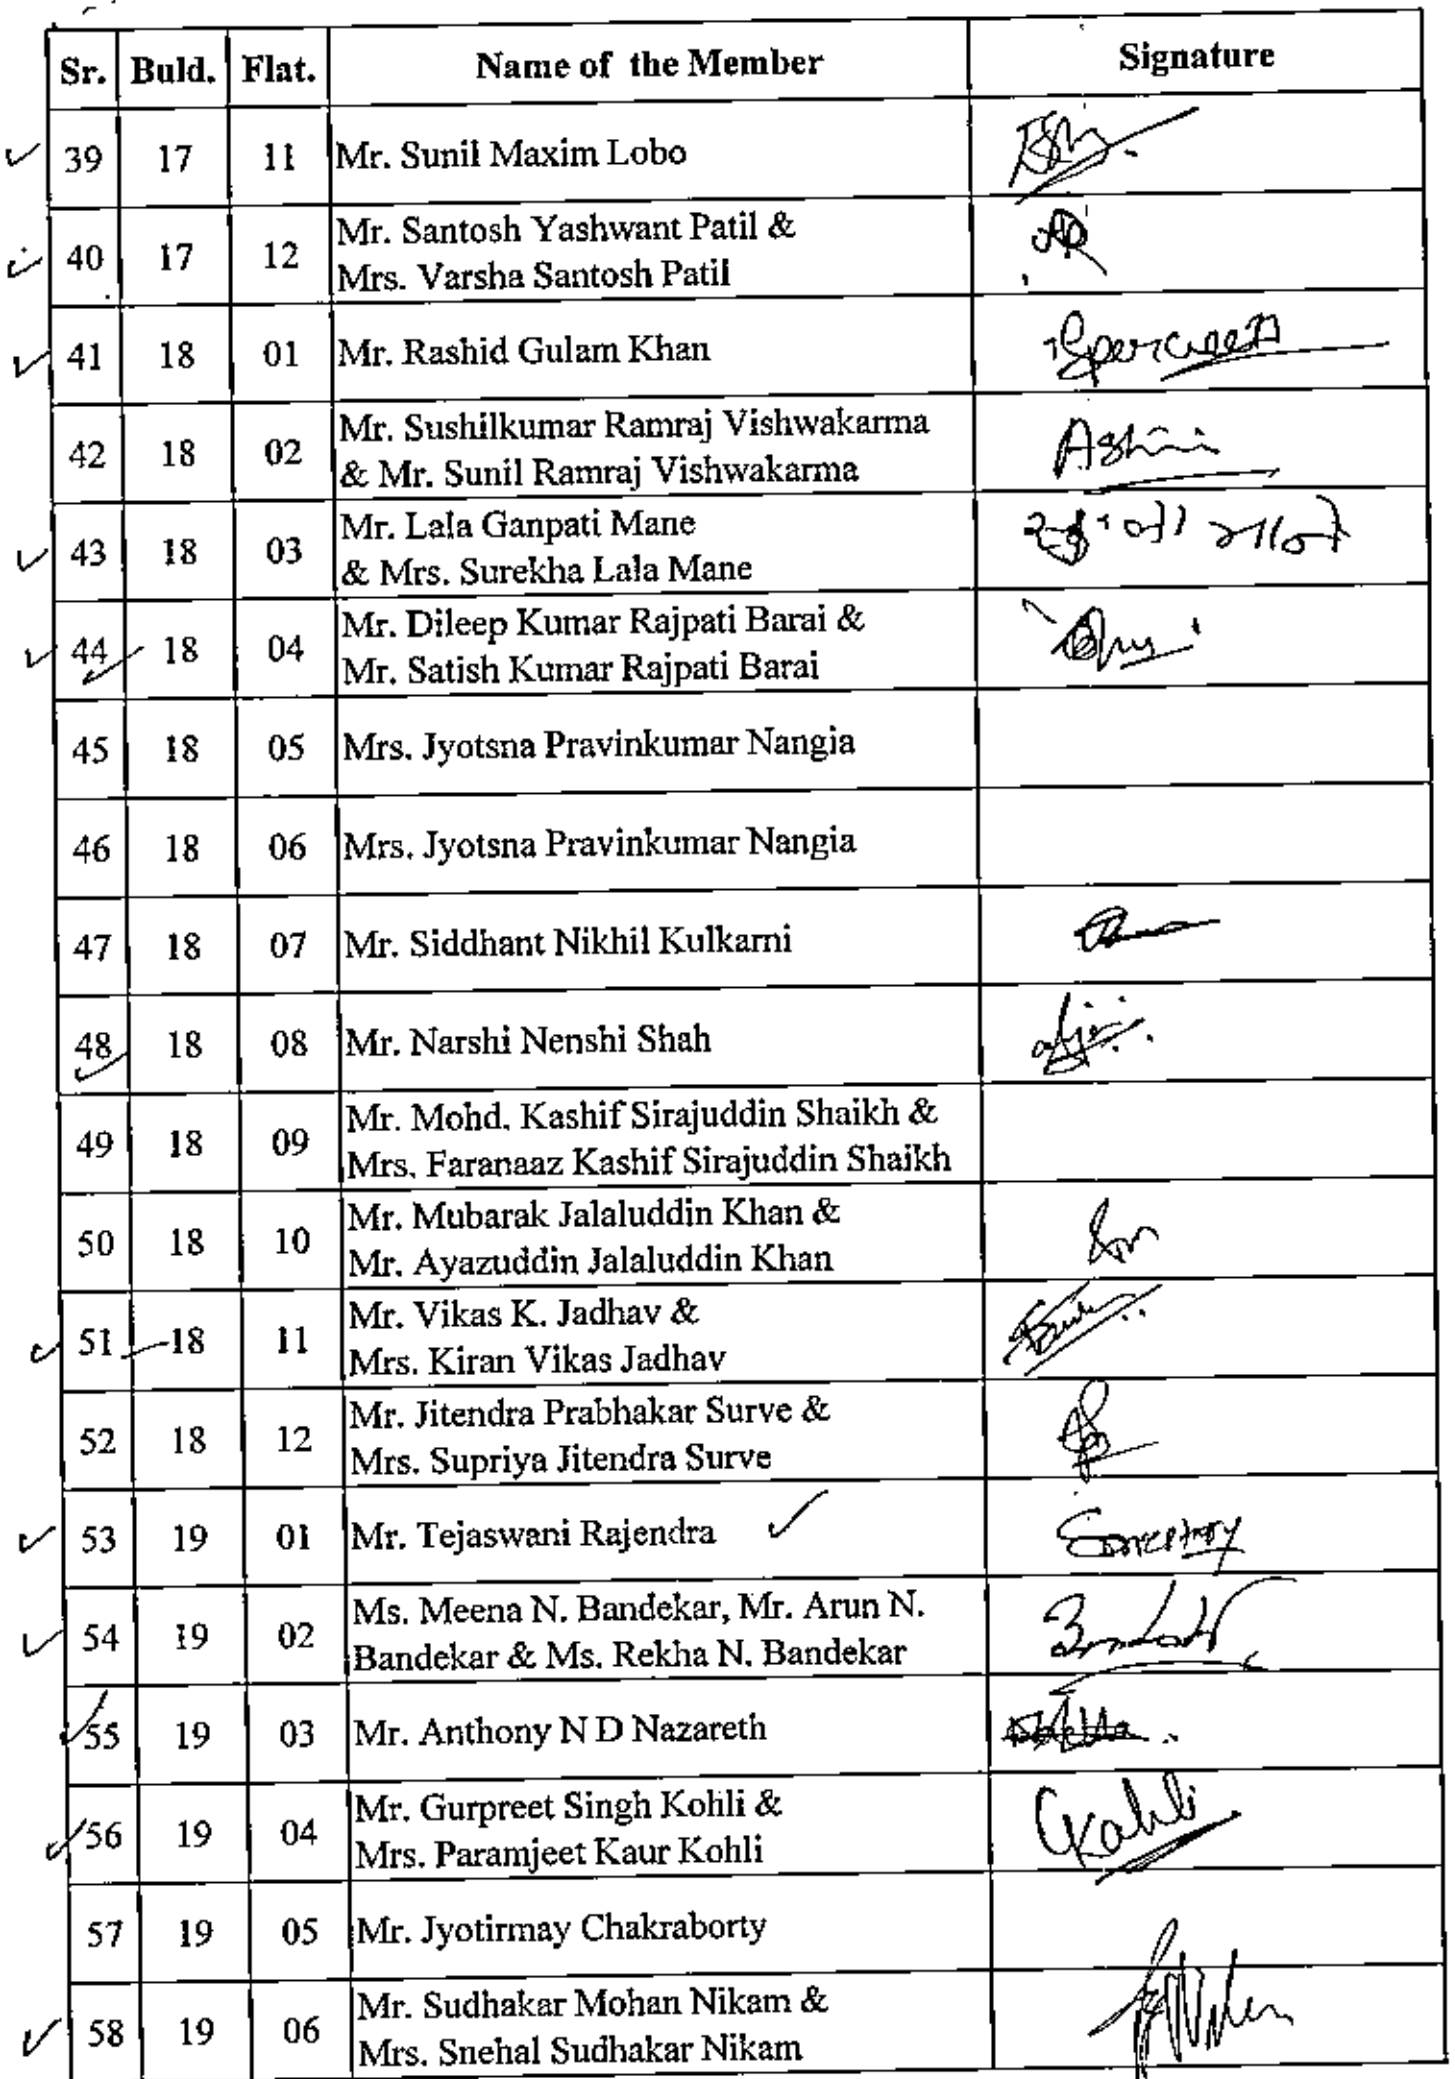 Sr. Buld. Flat. Name of the Member Signature
39 17 11 Mr. Sunil Maxim Lobo
40 17 12 Mr. Santosh Yashwant Patil &
Mrs. Varsha Santosh Patil
41 18 01 Mr. Rashid Gulam Khan
42 18 02 Mr. Sushilkumar Ramraj Vishwakarma
& Mr. Sunil Ramraj Vishwakarma
43 18 03 Mr. Lala Ganpati Mane
& Mrs. Surekha Lala Mane
44 18 04 Mr. Dileep Kumar Rajpati Barai &
Mr. Satish Kumar Rajpati Barai
45 18 05 Mrs. Jyotsna Pravinkumar Nangia
46 18 06 Mrs. Jyotsna Pravinkumar Nangia
47 18 07 Mr. Siddhant Nikhil Kulkarni
48 18 08 Mr. Narshi Nenshi Shah
49 18 09 Mr. Mohd. Kashif Sirajuddin Shaikh &
Mrs. Faranaaz Kashif Sirajuddin Shaikh
50 18 10 Mr. Mubarak Jalaluddin Khan &
Mr. Ayazuddin Jalaluddin Khan
51 18 11 Mr. Vikas K. Jadhav &
Mrs. Kiran Vikas Jadhav
52 18 12 Mr. Jitendra Prabhakar Surve &
Mrs. Supriya Jitendra Surve
53 19 01 Mr. Tejaswani Rajendra
54 19 02 Ms. Meena N. Bandekar, Mr. Arun N.
Bandekar & Ms. Rekha N. Bandekar
55 19 03 Mr. Anthony N D Nazareth
56 19 04 Mr. Gurpreet Singh Kohli &
Mrs. Paramjeet Kaur Kohli Kohli
57 19 05 Mr. Jyotirmay Chakraborty
58 19 06 Mr. Sudhakar Mohan Nikam &
Mrs. Snehal Sudhakar Nikam